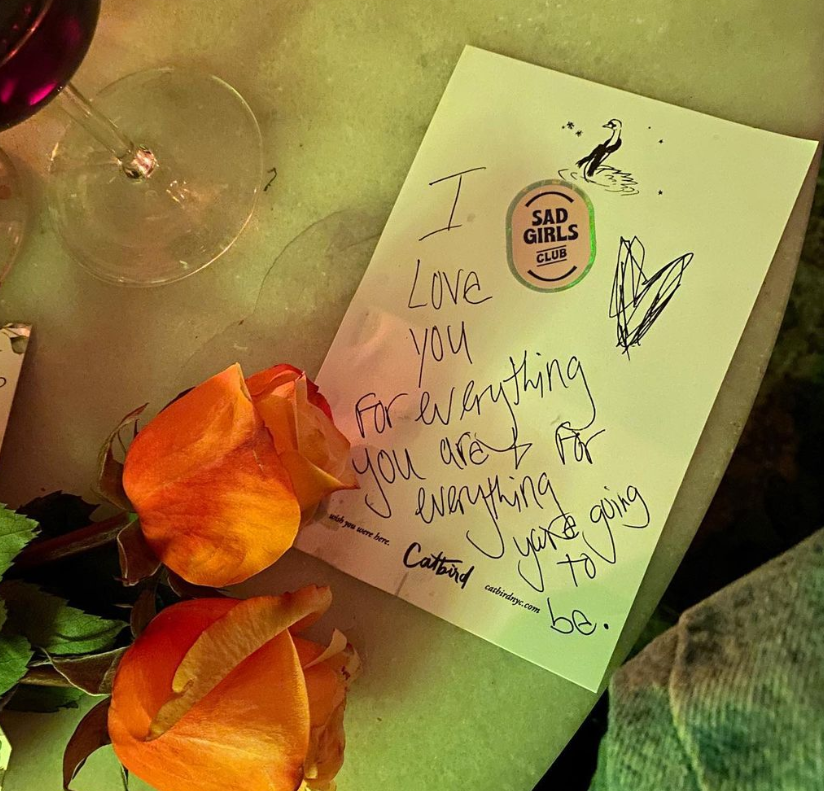 SAD
GIRLS
CLUB
I
LOVE
YOU
FOR everything
you are + FOR
everything
you're going
to
be.
wish you were here.
Catbird
catbirdnyc.com